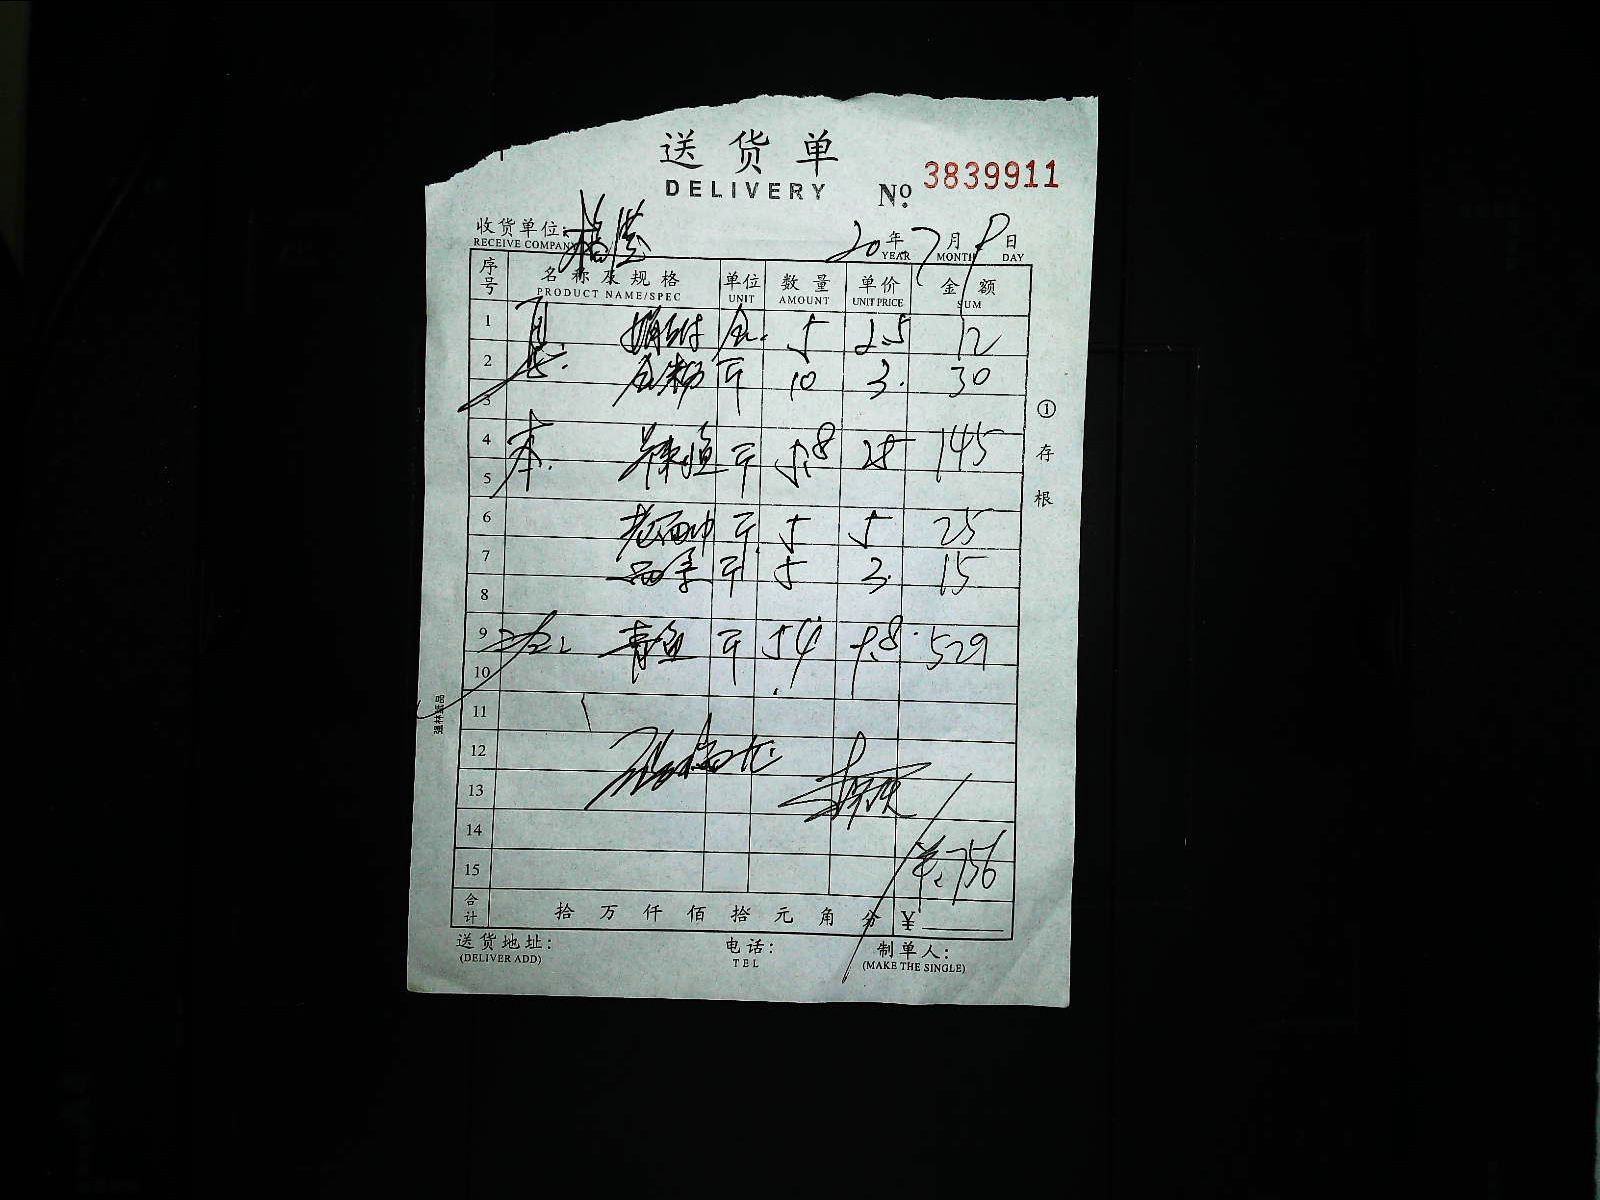 送货单
DELIVERY
№ 3839911
收货单位:
RECEIVE COMPANY
20 年 7 月 8 日
YEAR MONTH DAY
序号 名称及规格 单位 数量 单价 金额
PRODUCT NAME/SPEC UNIT AMOUNT UNIT PRICE SUM
1 5 2.5 12
2 斤 10 3. 30
3
4 斤 5.8 25 145
5
6 斤 5 5 25
7 斤 5 3. 15
8
9 青鱼 斤 54 9.8 529
10
11
12
13
14
15 ¥:756
合计 拾 万 仟 佰 拾 元 角 分 ¥
送货地址: 电话: 制单人:
(DELIVER ADD) TEL (MAKE THE SINGLE)
① 存根
强林纸品